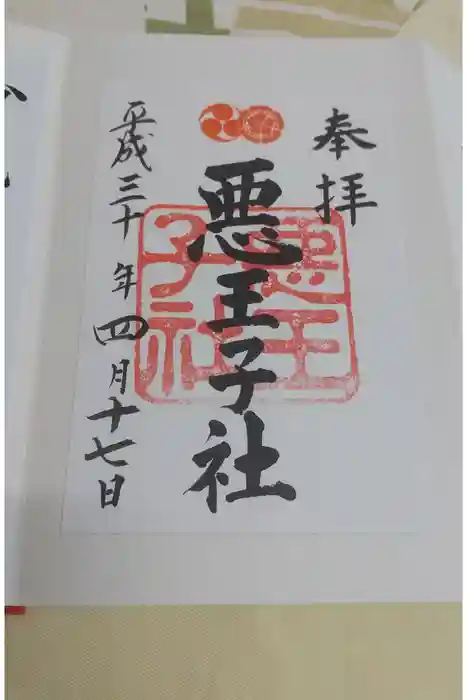 奉拝
悪王子社
平成三十年四月十七日